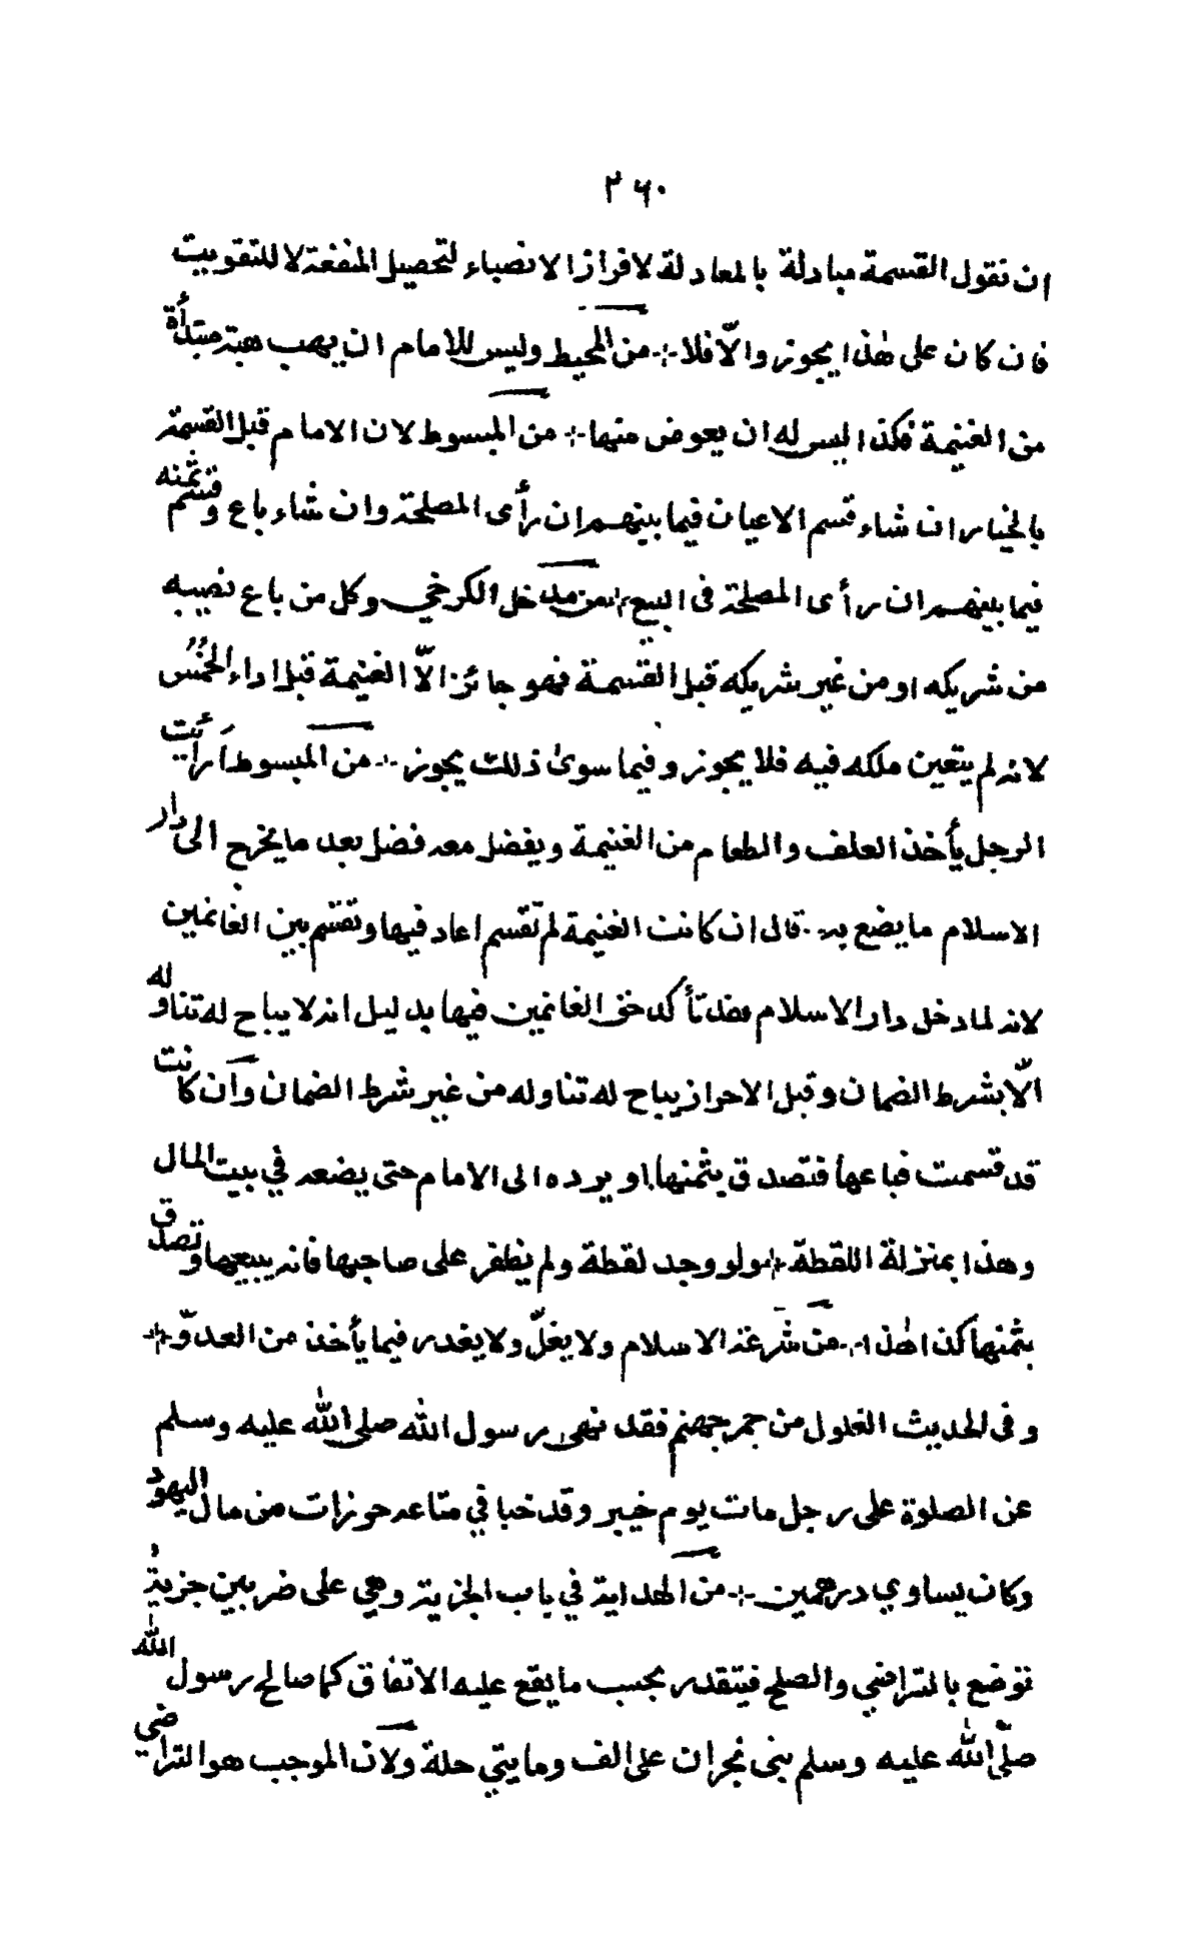 ٢٦٠
ان نقول القسمة مبادلة بالمعادلة لافراز الانصباء لتحصيل المنفعة لا للتفويت
فان كان على هٰذا يجوز والّا فلا ÷ من المحيط وليس للامام ان يهب هبة مبتدأة
من الغنيمة فكذا ليس له ان يعوض منها ÷ من المبسوط لان الامام قبل القسمة
بالخيار ان شاء قسم الاعيان فيما بينهم ان رأى المصلحة وان شاء باع وقسم ثمنه
فيما بينهم ان رأى المصلحة فى البيع ÷ من مدخل الكرخي وكل من باع نصيبه
من شريكه او من غير شريكه قبل القسمة فهو جائز الّا الغنيمة قبل اداء الخُمُس
لانه لم يتعين ملكه فيه فلا يجوز وفيما سوىٰ ذلك يجوز ÷ من المبسوط اَرأيت
الرجل يأخذ العلف والطعام من الغنيمة ويفضل معه فضل بعد ما يخرج الى دار
الاسلام ما يضع به ÷ قال ان كانت الغنيمة لم تقسم اعاد فيها وتقسم بين الغانمين
لانه لما دخل دار الاسلام فقد تأكد حق الغانمين فيها بدليل انه لا يباح له تناوله
الّا بشرط الضمان وقبل الاحراز يباح له تناوله من غير شرط الضمان وان كانت
قد قسمت فباعها فتصدق بثمنها او يرده الى الامام حتى يضعه في بيت المال
وهذا بمنزلة اللقطة ÷ ولو وجد لقطة ولم يظفر على صاحبها فانه يبيعها وتصدق
بثمنها كذا هٰذا ÷ من شرعة الاسلام ولا يغلّ ولا يغدر فيما يأخذ من العدوّ ÷
وفى الحديث الغلول من جمر جهنم فقد نهى رسول الله صلى الله عليه وسلم
عن الصلوة على رجل مات يوم خيبر وقد خبا في متاعه حرزات من مال اليهود
وكان يساوي درهمين ÷ من الهداية في باب الجزية وهي على ضربين جزيةٌ
توضع بالتراضي والصلح فيتقدر بحسب ما يقع عليه الاتفاق كما صالح رسول الله
صلّى الله عليه وسلم بنى نجران على الف ومايتي حلة ولان الموجب هو التراضي